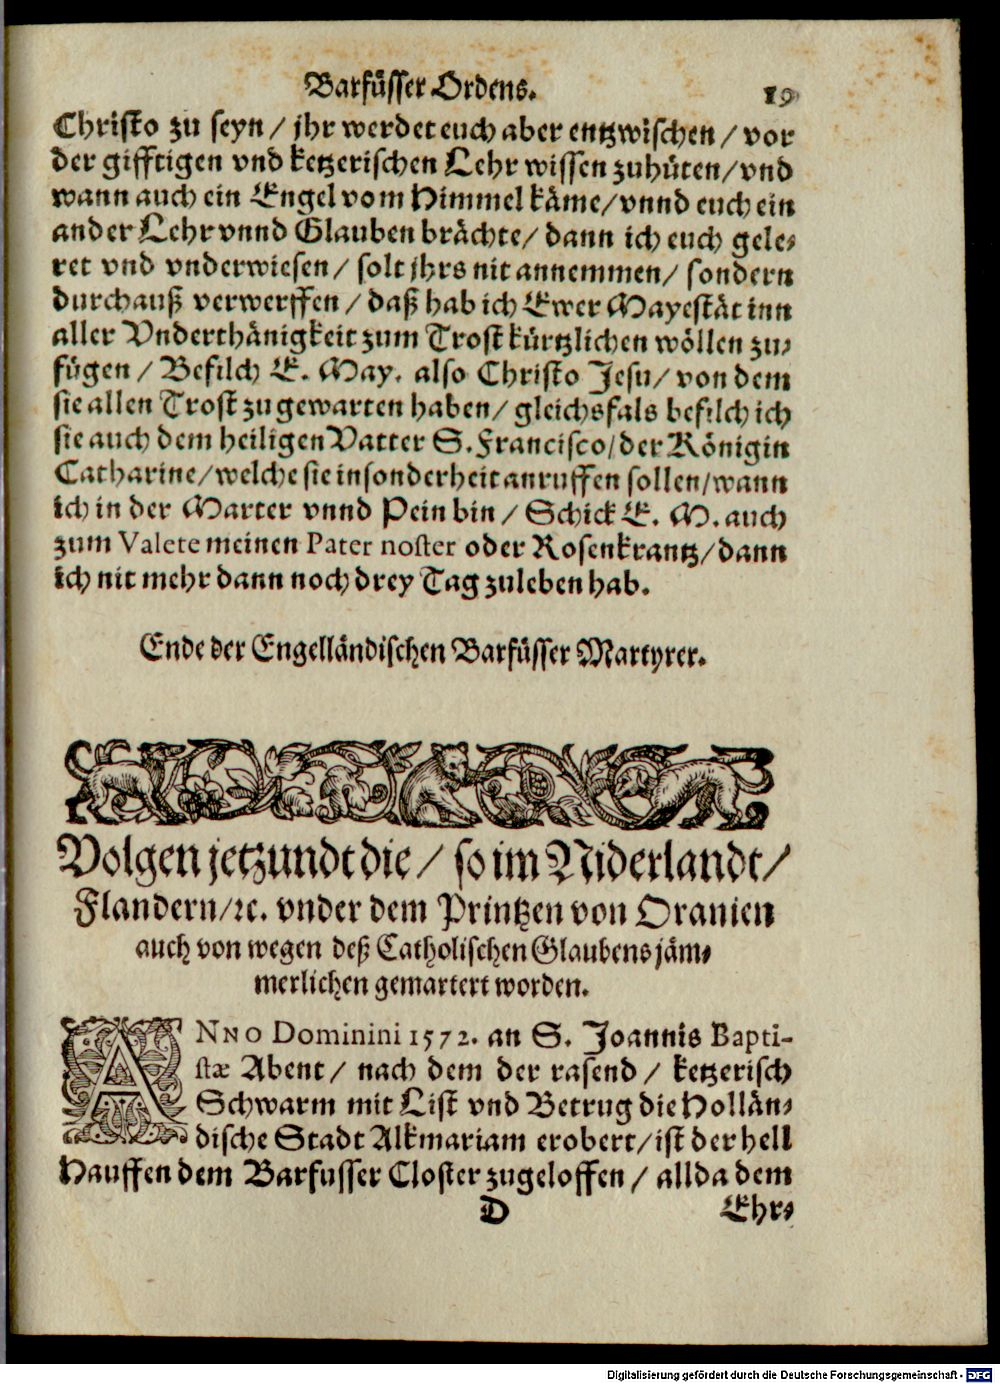 Barfüsser Ordens. 19
Christo zu seyn / jhr werdet euch aber entzwischen / vor
der gifftigen vnd ketzerischen Lehr wissen zuhüten / vnd
wann auch ein Engel vom Himmel käme / vnnd euch ein
ander Lehr vnnd Glauben brächte / dann ich euch gele⸗
ret vnd vnderwiesen / solt jhrs nit annemmen / sondern
durchauß verwerffen / daß hab ich Ewer Mayestät inn
aller Vnderthänigkeit zum Trost kürtzlichen wöllen zu⸗
fügen / Befilch E. May. also Christo Jesu / von dem
sie allen Trost zu gewarten haben / gleichsfals befilch ich
sie auch dem heiligen Vatter S. Francisco / der Königin
Catharine / welche sie insonderheit anruffen sollen / wann
ich in der Marter vnnd Pein bin / Schick E. M. auch
zum Valete meinen Pater noster oder Rosenkrantz / dann
ich nit mehr dann noch drey Tag zuleben hab.
Ende der Engelländischen Barfüsser Martyrer.
Volgen jetzundt die / so im Niderlandt /
Flandern / ꝛc. vnder dem Printzen von Oranien
auch von wegen deß Catholischen Glaubens jäm⸗
merlichen gemartert worden.
ANNO Dominini 1572. an S. Joannis Bapti-
stæ Abent / nach dem der rasend / ketzerisch
Schwarm mit List vnd Betrug die Hollän⸗
dische Stadt Alkmariam erobert / ist der hell
Hauffen dem Barfusser Closter zugeloffen / allda dem
D Ehr⸗
Digitalisierung gefördert durch die Deutsche Forschungsgemeinschaft - DFG